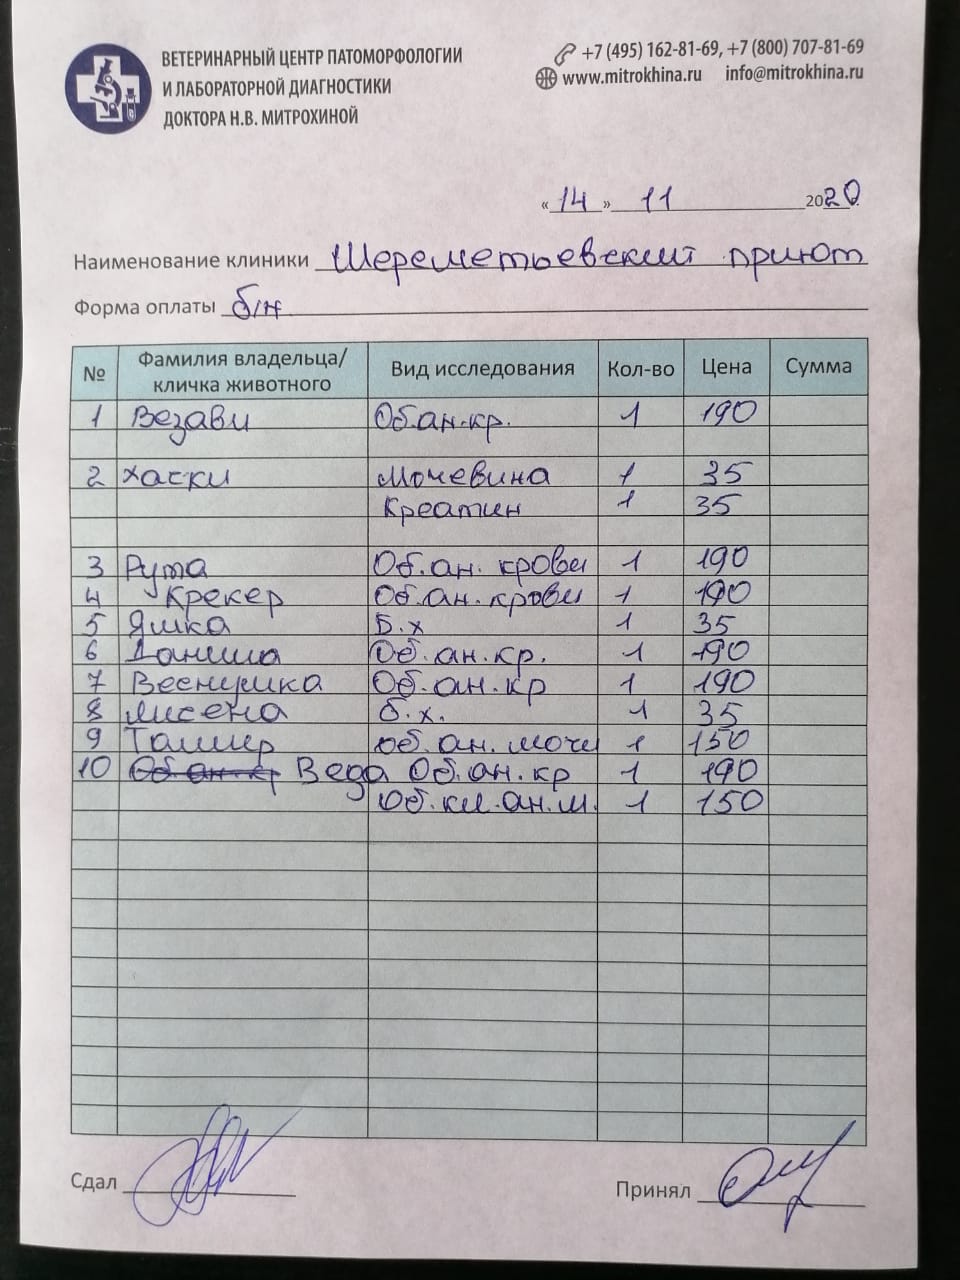 ВЕТЕРИНАРНЫЙ ЦЕНТР ПАТОМОРФОЛОГИИ
И ЛАБОРАТОРНОЙ ДИАГНОСТИКИ
ДОКТОРА Н.В. МИТРОХИНОЙ
+7 (495) 162-81-69, +7 (800) 707-81-69
www.mitrokhina.ru info@mitrokhina.ru
«14» 11 2020
Наименование клиники Шереметьевский приют
Форма оплаты б/н
№ Фамилия владельца/ кличка животного Вид исследования Кол-во Цена Сумма
1 Везави Об.ан.кр. 1 190
2 Хаски Мочевина 1 35
Креатин 1 35
3 Рута Об.ан. крови 1 190
4 Крекер Об.ан.крови 1 190
5 Яшка Б.х 1 35
6 Даниша Об.ан.кр. 1 190
7 Веснушка Об.ан.кр 1 190
8 Лисёна б.х. 1 35
9 Тамир об.ан.мочи 1 150
10 Об ан кр Веда Об.ан.кр 1 190
Об.кл.ан.м. 1 150
Сдал
Принял